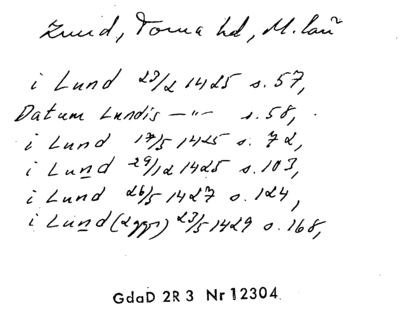 Lund, Torna hd, M. län
i Lund 23/2 1425 s. 57,
Datum Lundis —"— s. 58,
i Lund 17/5 1425 s. 72,
i Lund 29/12 1425 s. 103,
i Lund 26/5 1427 s. 124,
i Lund (2 ggr) 23/5 1429 s. 168,
GdaD 2R 3 Nr 12304